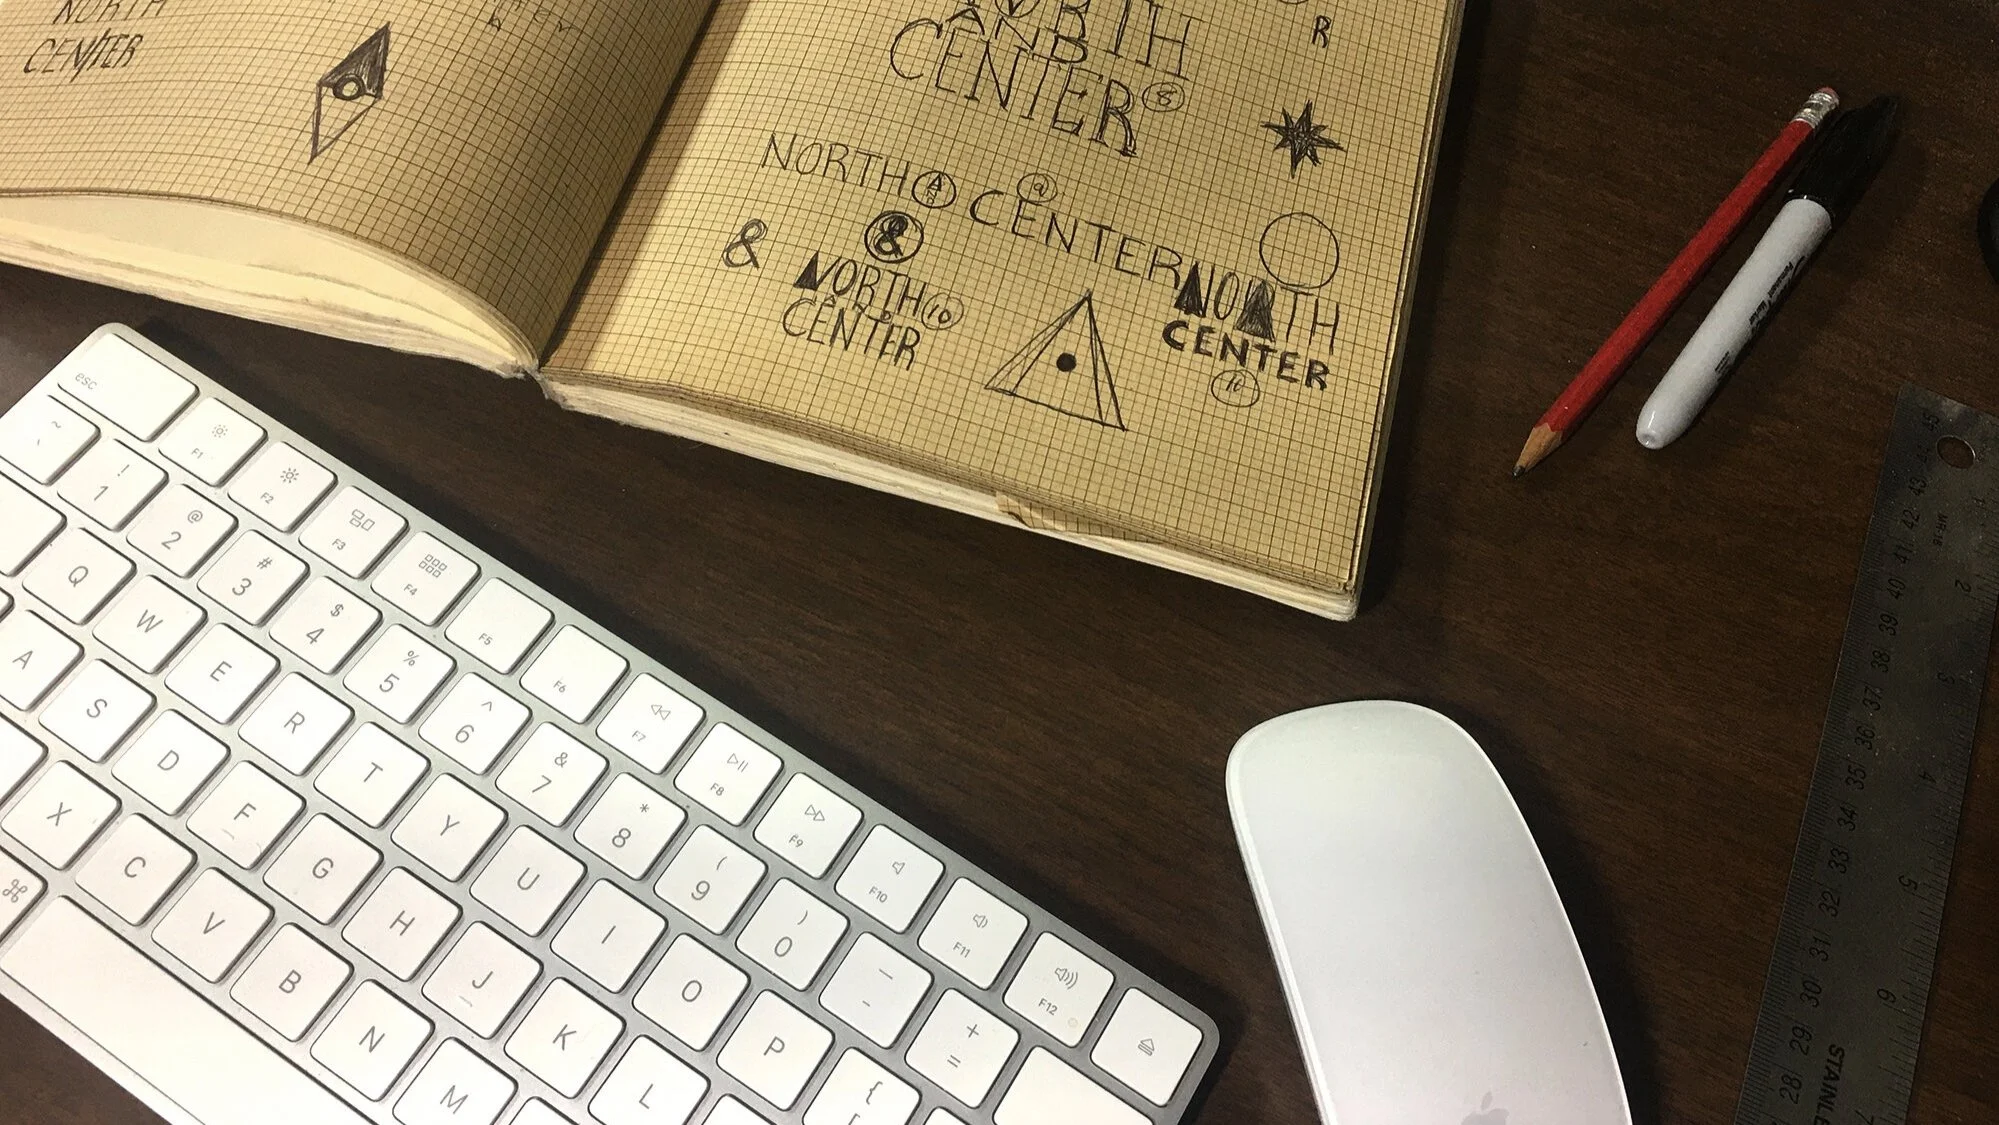 NORTH
CENTER
R
NORTH
AND
CENTER 8
NORTH AND CENTER
@
&
&
NORTH 10
CENTER
NORTH
CENTER
esc
F1
F2
F3
F4
F5
F6
F7
F8
F9
F10
F11
F12
~ `
! 1
@ 2
# 3
$ 4
% 5
^ 6
& 7
* 8
( 9
) 0
_ -
+ =
Q W E R T Y U I O P { [
A S D F G H J K L
⌘ X C V B N M
45 44 43 42 41 40 39 38 37 36 35 34 33 32 31 30 29 28
1 2 3 4 5 6 7
STAINLE